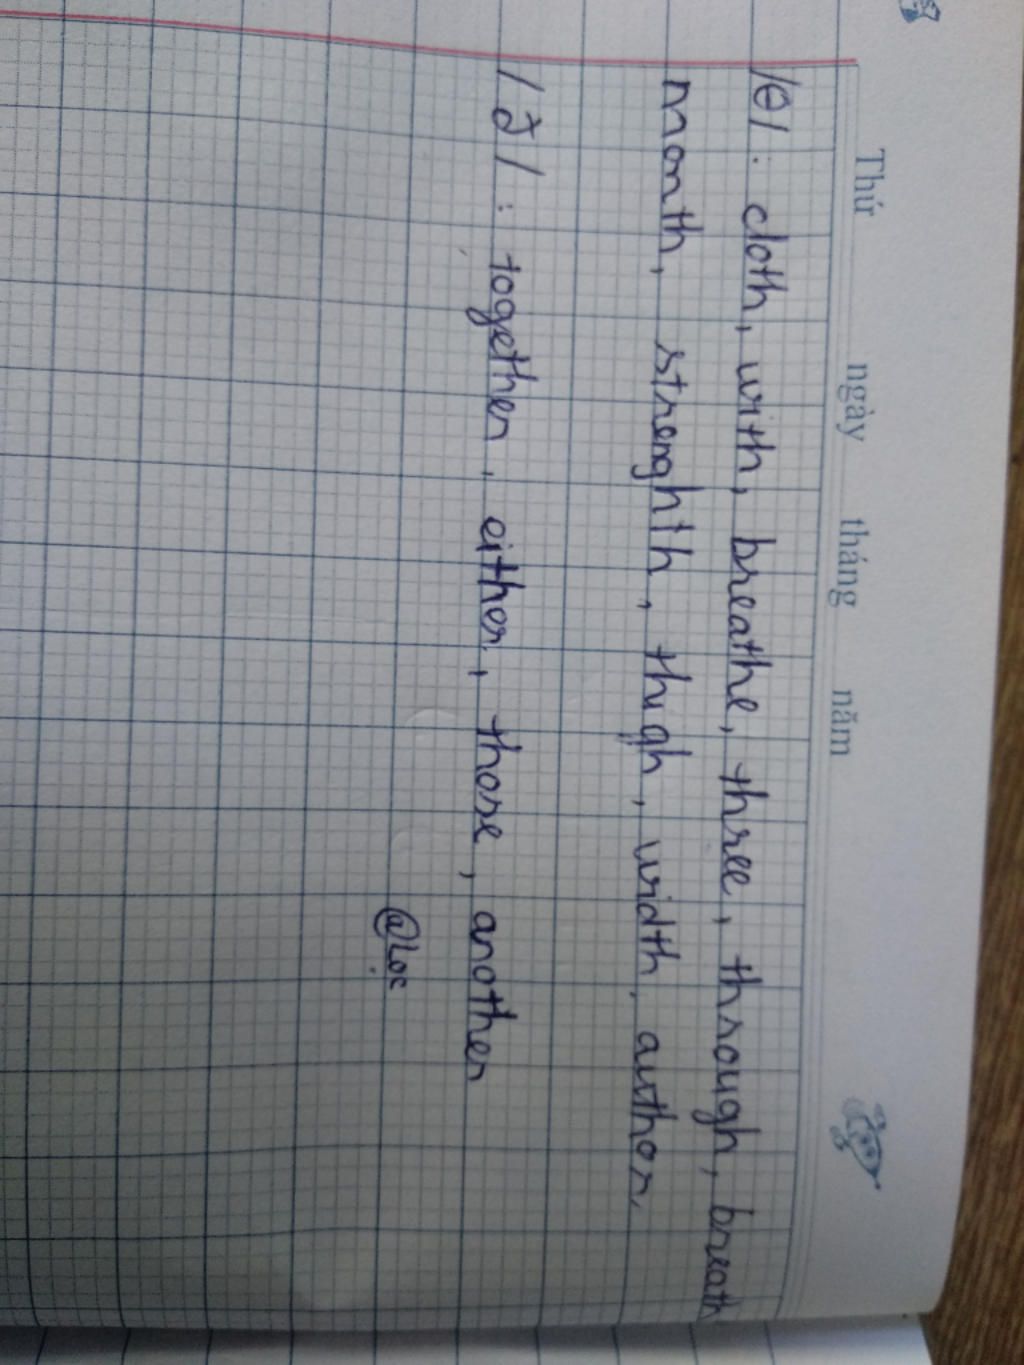 Thứ ngày tháng năm
/θ/ : cloth, with, breathe, three, through, breath
month, strenghth, thigh, width, author,
/ð/ : together, either, those, another
@Lộc